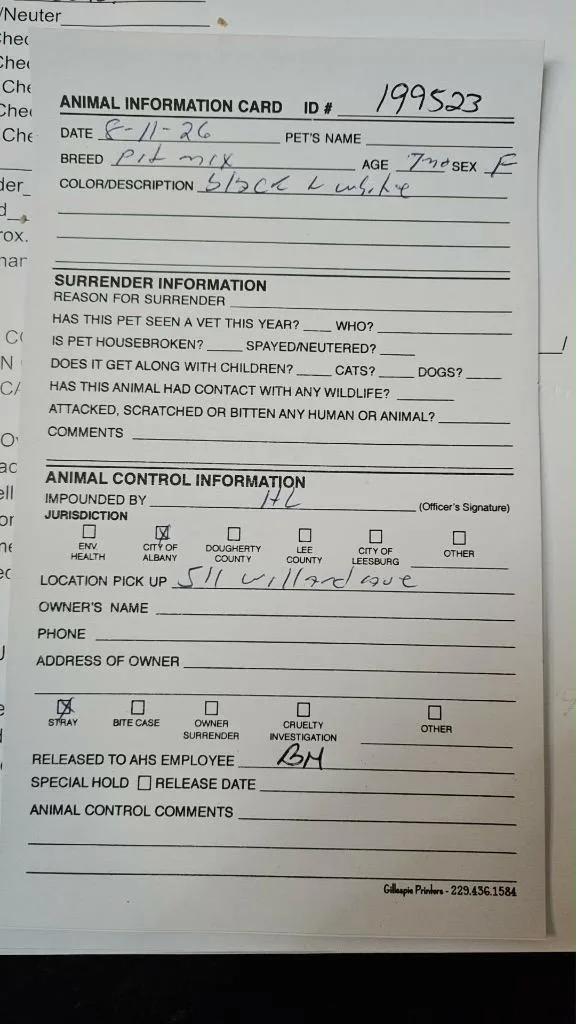 /Neuter
Chec
Chec
Che
Chec
Che
ANIMAL INFORMATION CARD ID # 199523
DATE 8-11-26 PET'S NAME
BREED pit mix AGE 7mo SEX F
COLOR/DESCRIPTION black & white
SURRENDER INFORMATION
REASON FOR SURRENDER
HAS THIS PET SEEN A VET THIS YEAR? WHO?
IS PET HOUSEBROKEN? SPAYED/NEUTERED?
DOES IT GET ALONG WITH CHILDREN? CATS? DOGS?
HAS THIS ANIMAL HAD CONTACT WITH ANY WILDLIFE?
ATTACKED, SCRATCHED OR BITTEN ANY HUMAN OR ANIMAL?
COMMENTS
ANIMAL CONTROL INFORMATION
IMPOUNDED BY HL (Officer's Signature)
JURISDICTION
ENV. HEALTH CITY OF ALBANY DOUGHERTY COUNTY LEE COUNTY CITY OF LEESBURG OTHER
LOCATION PICK UP 511 willard ave
OWNER'S NAME
PHONE
ADDRESS OF OWNER
STRAY BITE CASE OWNER SURRENDER CRUELTY INVESTIGATION OTHER
RELEASED TO AHS EMPLOYEE BM
SPECIAL HOLD RELEASE DATE
ANIMAL CONTROL COMMENTS
Gillespie Printers - 229.436.1584